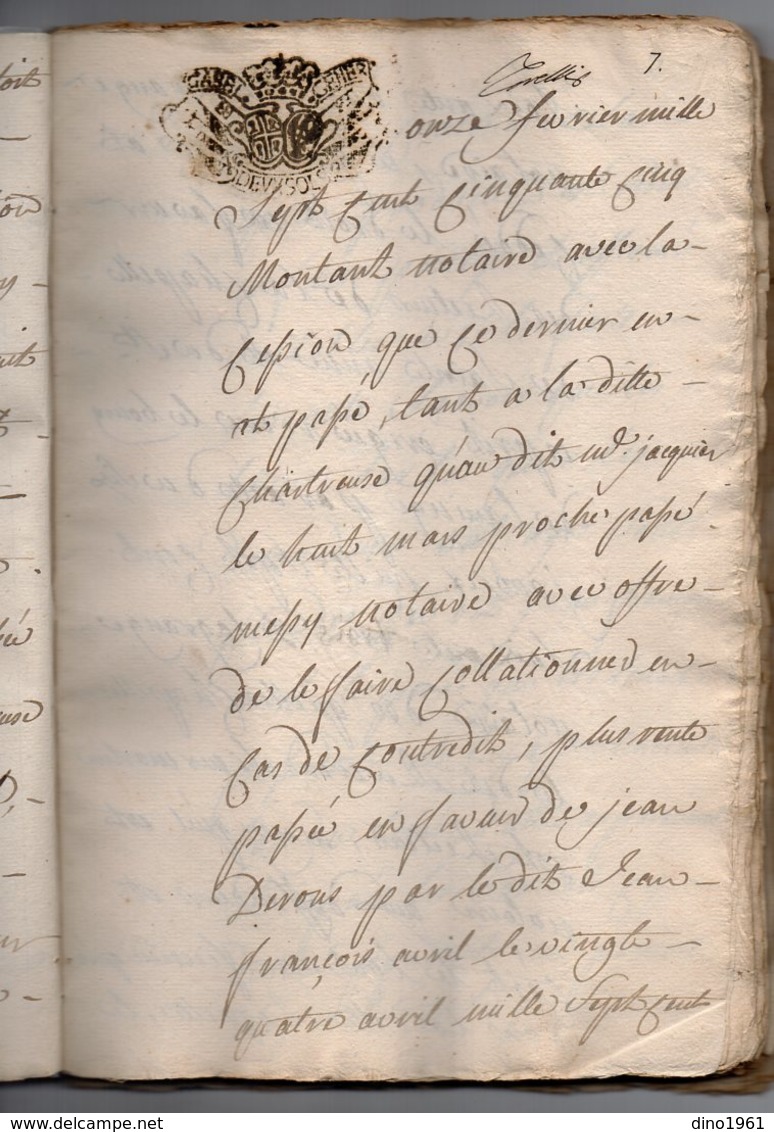 7.
GABEL GENER
DEUX SOLS
onze fevrier mille
Sept Cent Cinquante Cinq
Montant notaire avec la -
Cession que Ce dernier en -
at passé, tant a la ditte -
Chartreuse qu'au dit md. jacquier
le huit mars proche passé
messy notaire avec offre -
de le faire Collationner en -
Cas de Contredit, plus vente
passée en faveur de jean
Derous par le dit Jean -
françois avril le vingt -
quatre avril mille Sept Cent
delcampe.net
dino1961